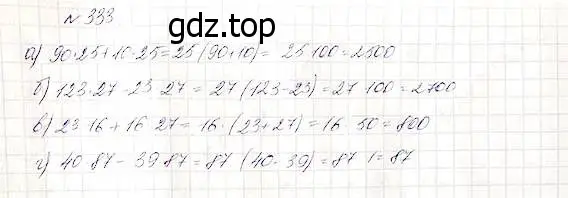 № 333
gdz.top
а) 90·25+10·25=25(90+10)= 25·100=2500
б) 123·27-23·27= 27(123-23)=27·100=2700
в) 23·16+16·27= 16·(23+27)=16·50=800
г) 40·87-39·87=87(40-39)=87·1=87